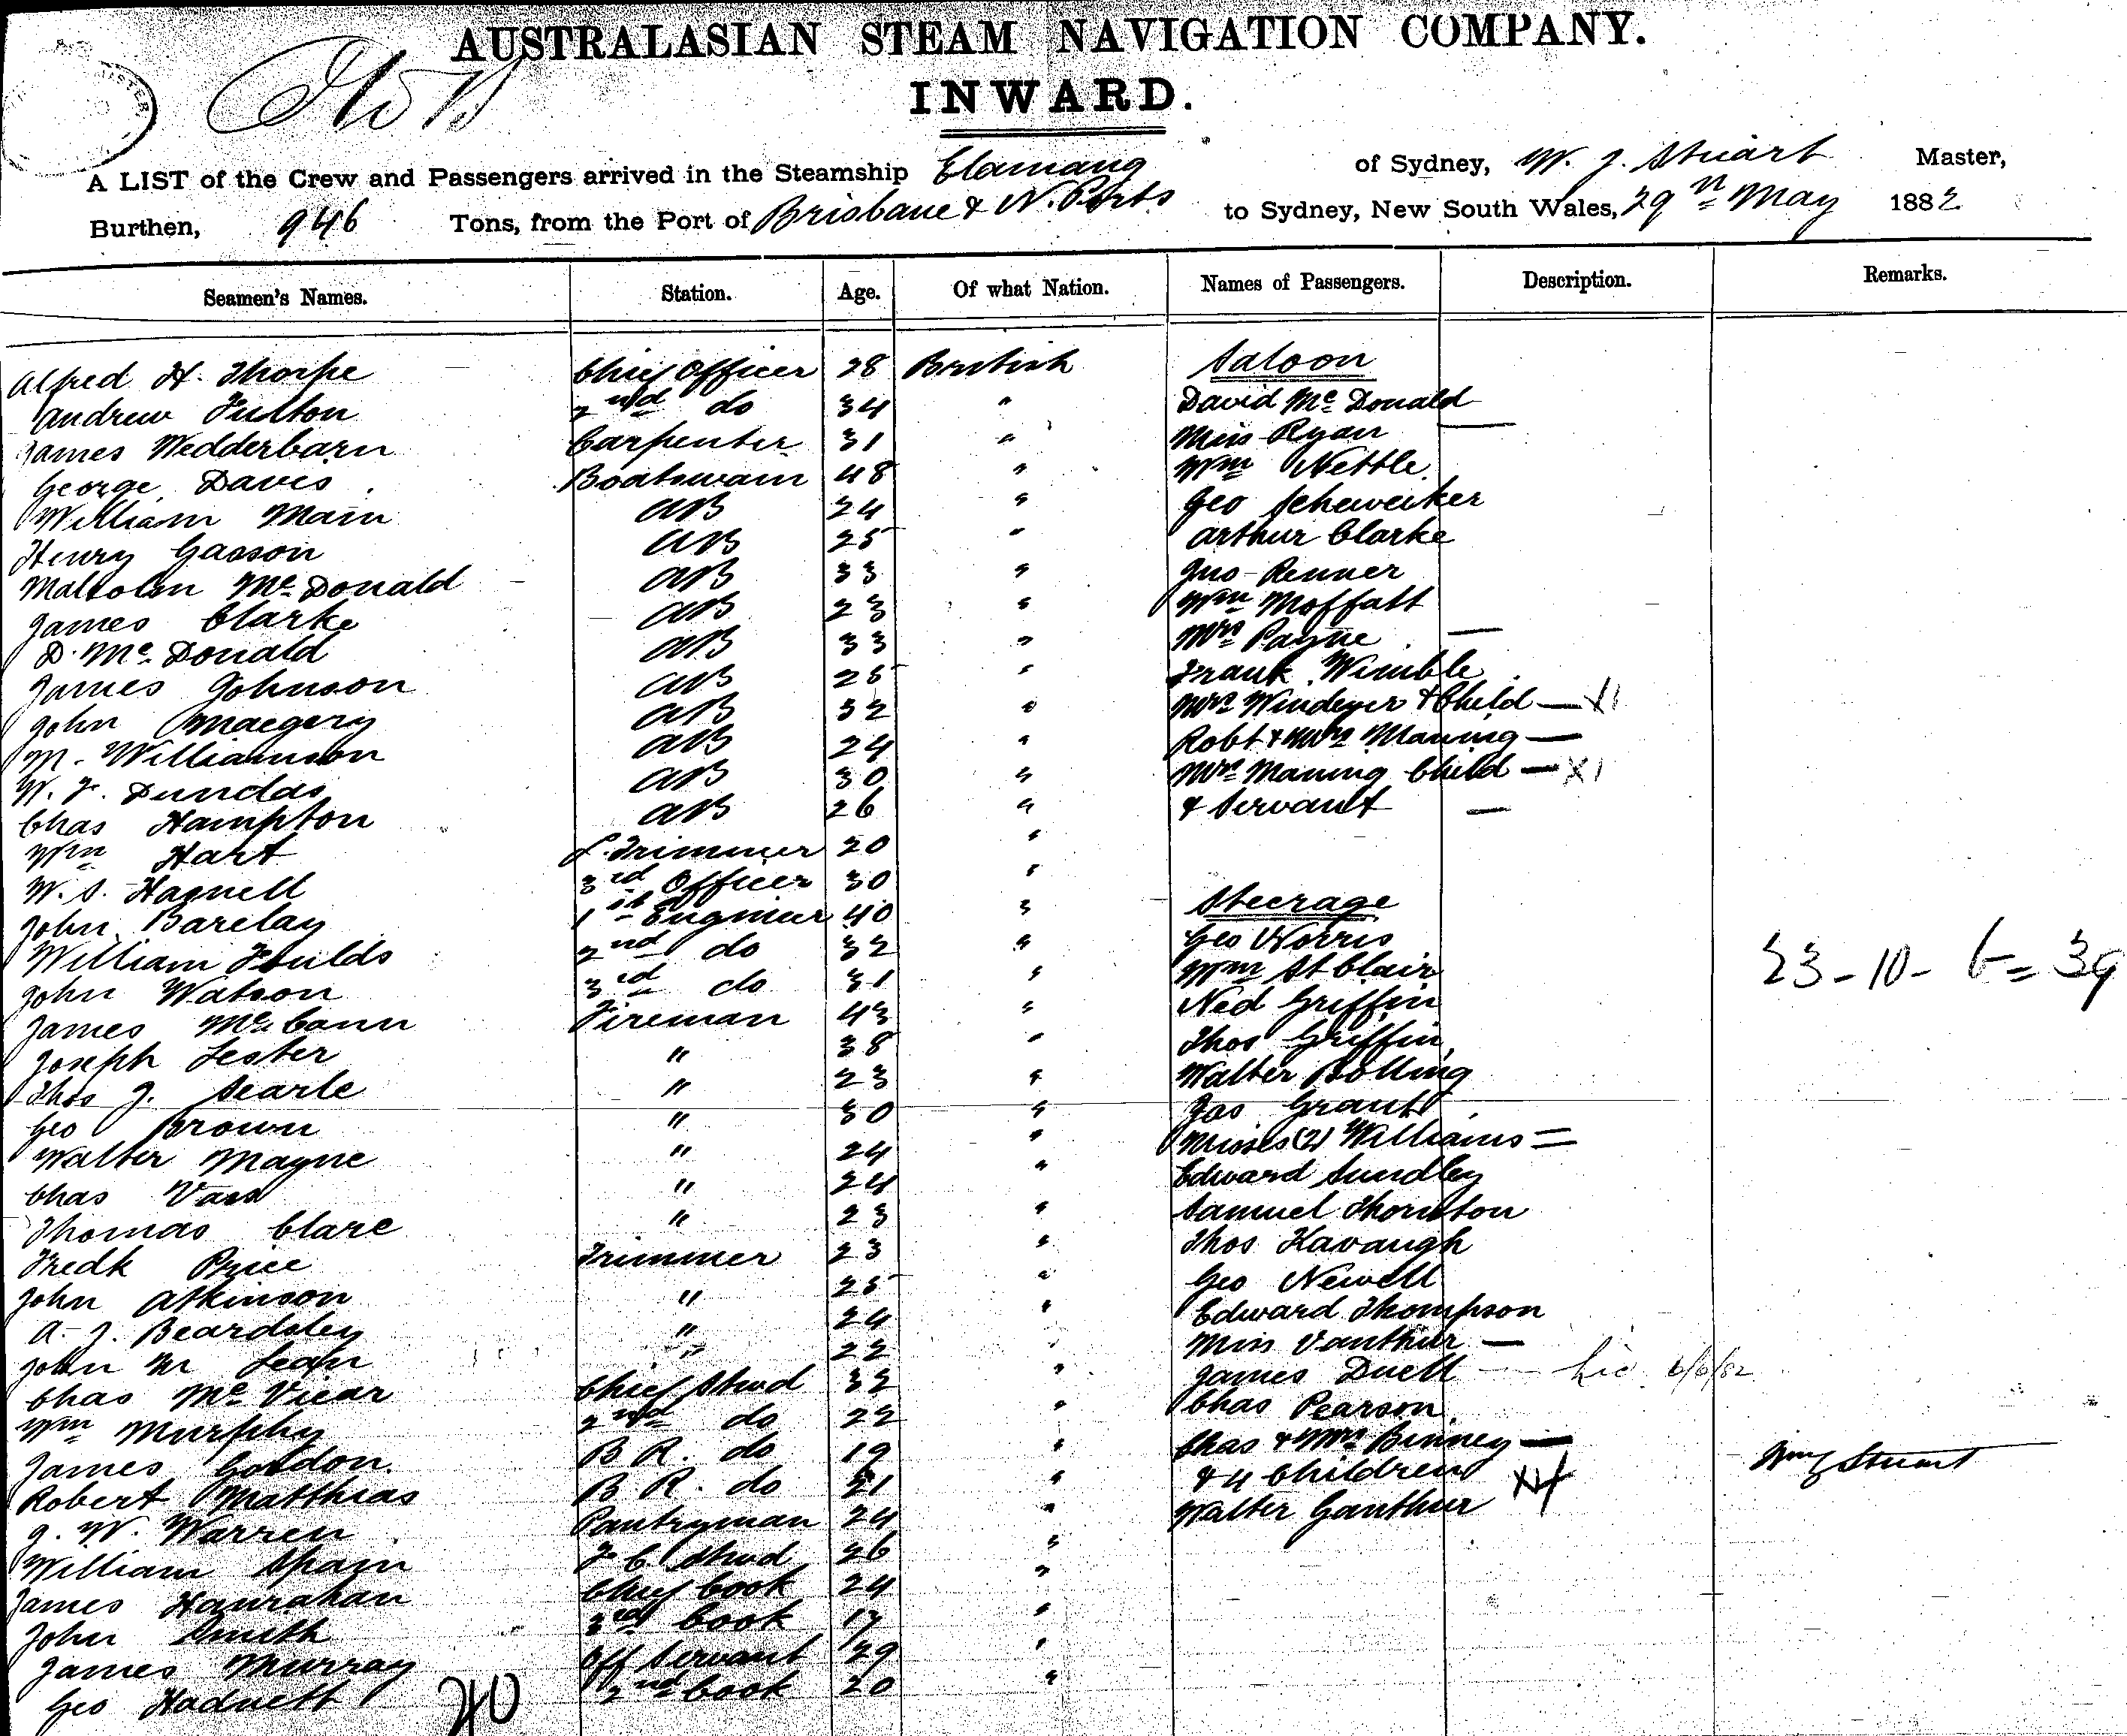 AUSTRALASIAN STEAM NAVIGATION COMPANY.
INWARD.
A LIST of the Crew and Passengers arrived in the Steamship Elamang of Sydney, W. J. Stuart Master,
Burthen, 946 Tons, from the Port of Brisbane & N. Ports to Sydney, New South Wales, 29th May 1882
Seamen's Names. Station. Age. Of what Nation. Names of Passengers. Description. Remarks.
Alfred H. Thorpe Chief Officer 28 British Saloon
Andrew Fulton 2nd do 34 " David McDonald
James Wedderbarn Carpenter 31 " Miss Ryan —
George Davis Boatswain 48 " Wm Nettle
William Main AB 24 " Geo Scheweiker
Henry Gasson AB 25 " Arthur Clarke
Malcolm McDonald AB 33 " Jno Renner
James Clarke AB 23 " Wm Moffatt
D. McDonald AB 33 " Mrs Payne —
James Johnson AB 25 " Frank Wimble
John Maegery AB 32 " Mrs Windeyer & Child — X1
M. Williamson AB 24 " Robt & Mrs Maning —
W. F. Dundas AB 30 " Mrs Maning Child — X1
Chas Hampton AB 26 " & Servant —
Wm Hart L. Trimmer 20 "
W. S. Hasnell 3rd Officer 30 "
John Barclay 1st Engineer 40 " Steerage
William Foulds 2nd do 32 " Geo Norris
John Watson 3rd do 31 " Wm St Clair 23 - 10 - 6 = 39
James McCann Fireman 43 " Ned Griffin
Joseph Lester " 38 " Thos Griffin
Thos J. Searle " 23 " Walter Bolling
Geo Brown " 30 " Jas Grant
Walter Mayne " 24 " Misses (2) Williams =
Chas Vass " 24 " Edward Sundley
Thomas Clare " 23 " Samuel Thornton
Fredk Price Trimmer 23 " Thos Kavaugh
John Atkinson " 25 " Geo Newell
A. J. Beardsley " 24 " Edward Thompson
John M Lean " 22 " Miss Vanthur —
Chas McVicar Chief Stwd 32 " James Duell — 6/6/82
Wm Murphy 2nd do 22 " Chas Pearson
James Gordon B R. do 19 " Chas & Mrs Binney —
Robert Matthias B R. do 21 " & 4 Children X4 Wm J Stuart
J. W. Warren Pantryman 24 " Walter Ganthur
William Spain F. C. Stwd 26 "
James Hanrahan Chief Cook 24 "
John Smith 3rd Cook 17 "
James Murray Off Servant 29 "
Geo Hadnett 2nd Cook 20 "
40